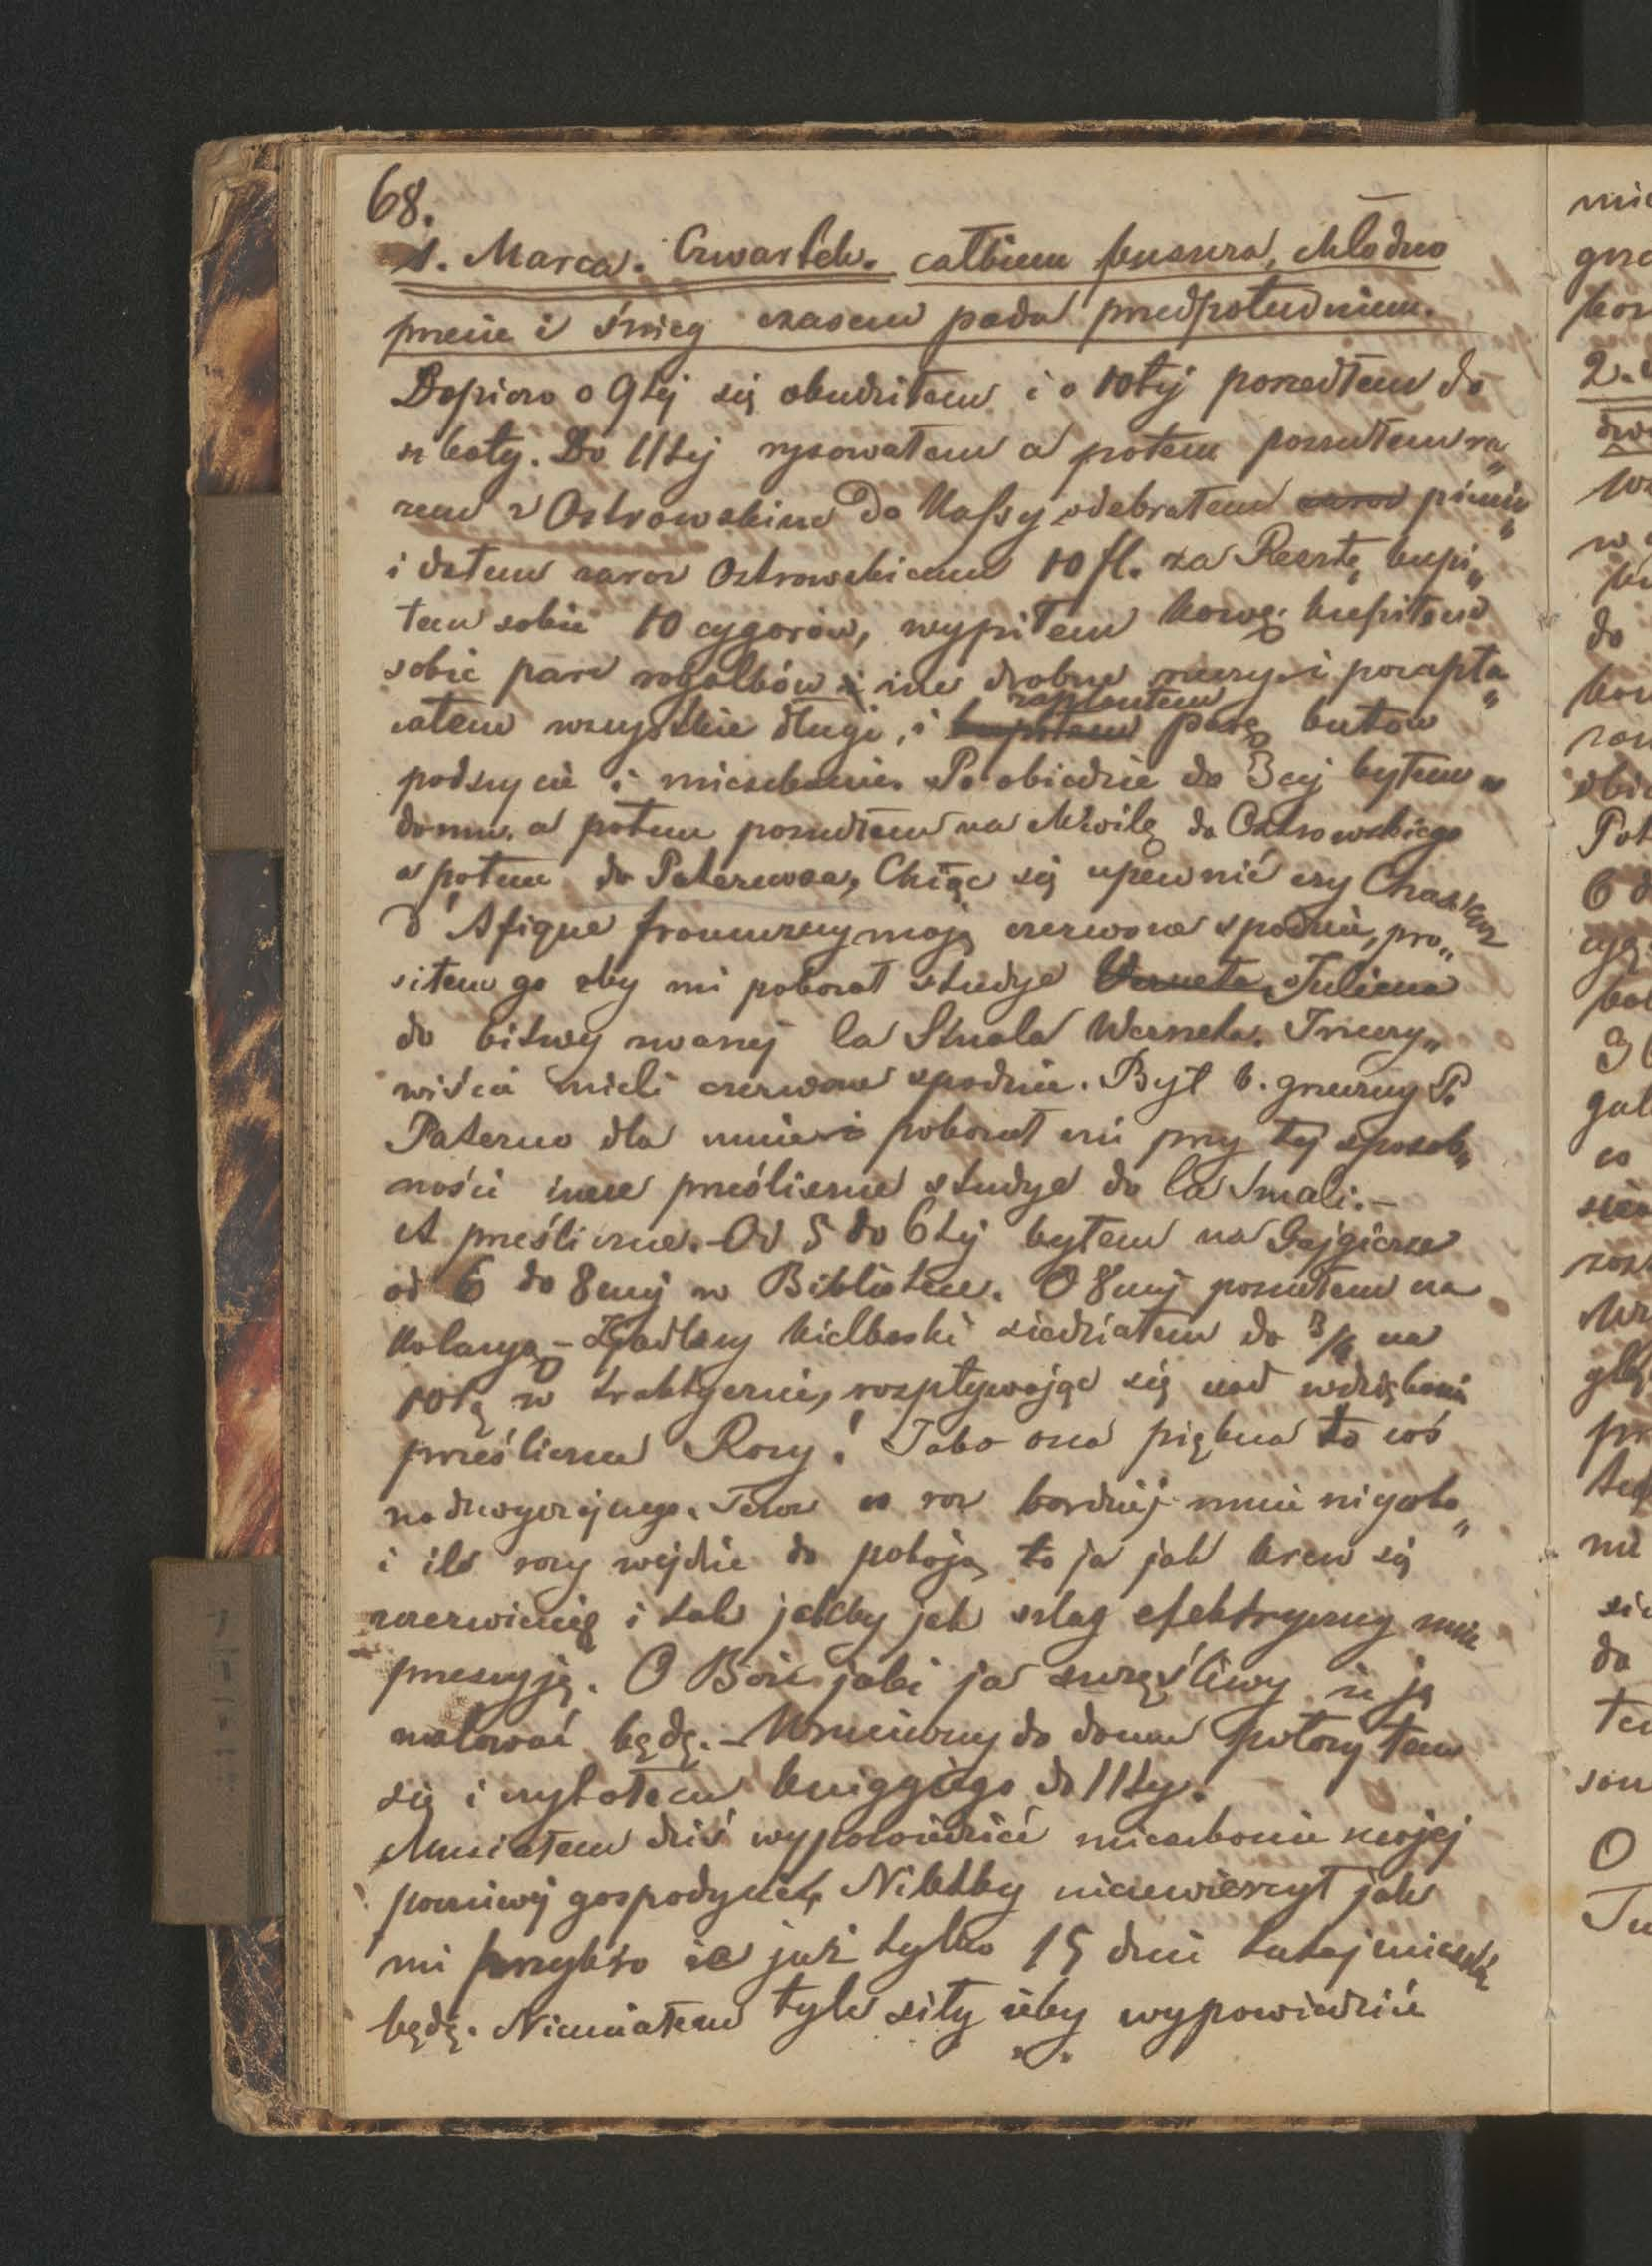 68.
1. Marca. Czwartek. całkiem ponura, chłodno
 i śnieg czasem pada przedpołudniem.
Dopiero o 9tej się obudziłem i o 10tej poszedłem do
szkoły. Do 11tej rysowałem a potem poszedłem ra„
zem z Ostrowskim do Kassy, odebrałem zaraz pienią„
i dałem zaraz Ostrowskiemu 10 fl. za Resztę kupi„
łem sobie 10 cygarów, wypiłem kawę, kupiłem
sobie parę rogalków i ine drobne rzeczy i pozapła„
całem wszystkie długi, i kupiłem zapłaciłem parę butów
podszycie i mieszkanie. Po obiedzie do 3ciej byłem w
domu. a potem poszedłem na chwilę do Ostrowskiego
a potem do Paternosa, Chcąc się upewnić czy Chasseurs
d'Afique francuzcy mają czerwone spodnie, pro„
siłem go żeby mi pokazał studye Verneta, Juliena
do bitwy zwanej la Smala Werneta. Irzeczy„
wiście mieli czerwone spodnie. Był b. grzeczny P.
Paterno dla mnie i pokazał mi przy tej sposob„
ności inne prześliczne studye do la Smali.—
A prześliczne.— Od 5 do 6tej byłem na Gejgierze
od 6 do 8mej w Bibliotece. O 8mej poszedłem na
Kolacyą — Zjadłszy kiełbaski siedziałem do 3/4 na
10tą w traktyerni, rozpływając się nad wdziękami
prześlicznej Rozy! Jako ona piękna to coś
nadzwyczajnego. Teraz co raz bardziej mnie nigaba„
i ile razy wejdzie do pokoju, to ja jak krew się
zczerwienię i tak jakby jak szlag elektryczny mnie
przeszyje. O Boże jaki ja szczęśliwy że ją
malować będę. — Wróciwszy do domu położyłem
się i czytałem Kniggiego do 11tej.
Musiałem dziś wypowiedzieć mieszkanie mojej
poczciwej gospodyni, Niktby nieuwierzył jak
mi przykro że już tylko 15 dni tutaj mieszkać
będę. Niemiałem tyle siły żeby wypowiedzieć